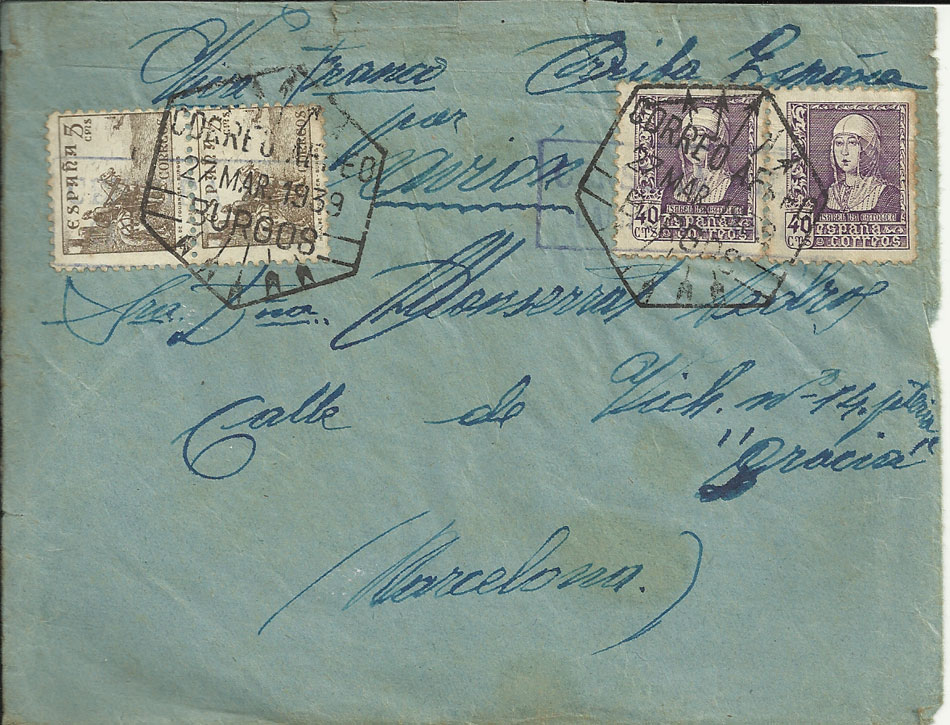 Viva Franco Arriba España
por
avión
5 CTS
ESPAÑA
CORREOS
5 CTS
ESPAÑA
CORREOS
CORREO AEREO
MAR 1939
BURGOS
CORREO AEREO
27 MAR
40 CTS
ISABEL LA CATOLICA
ESPAÑA
CORREOS
40 CTS
ISABEL LA CATOLICA
ESPAÑA
CORREOS
Sra. Dna. Monserrat
Calle de Vich. nº 14.
"Gracia"
(Barcelona.)